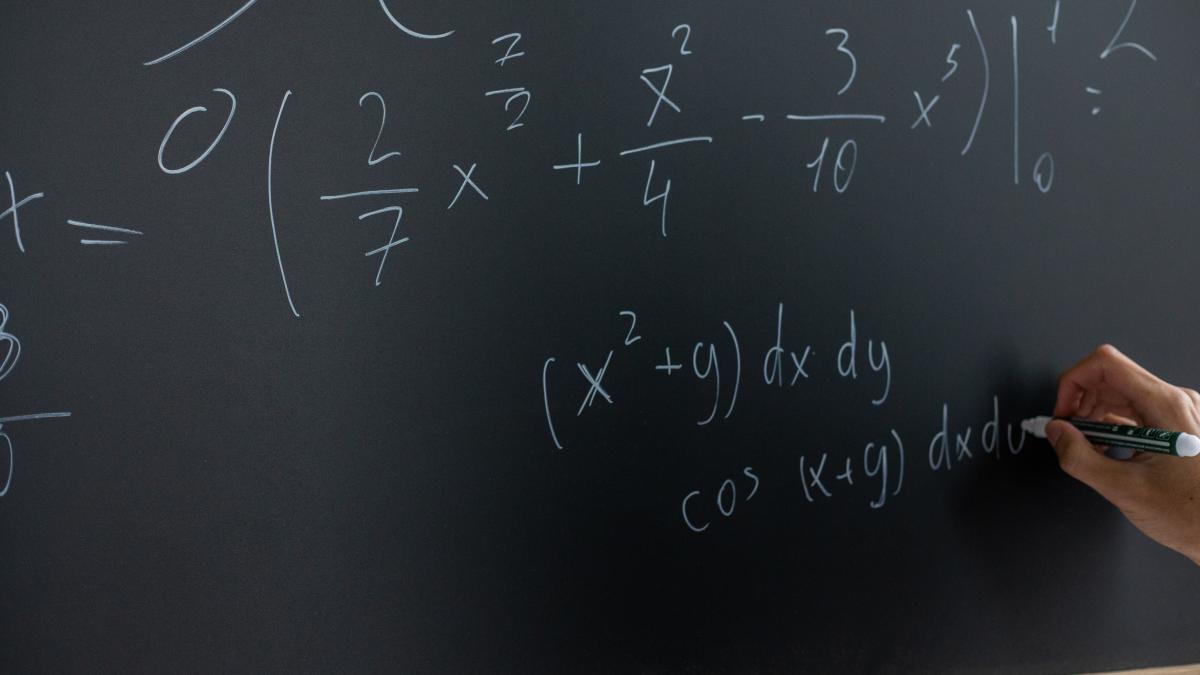 x = 0 ( 2/7 x^(7/2) + x^2/4 - 3/10 x^5 ) |_0^1 =
(x^2 + y) dx dy
cos (x+y) dx du